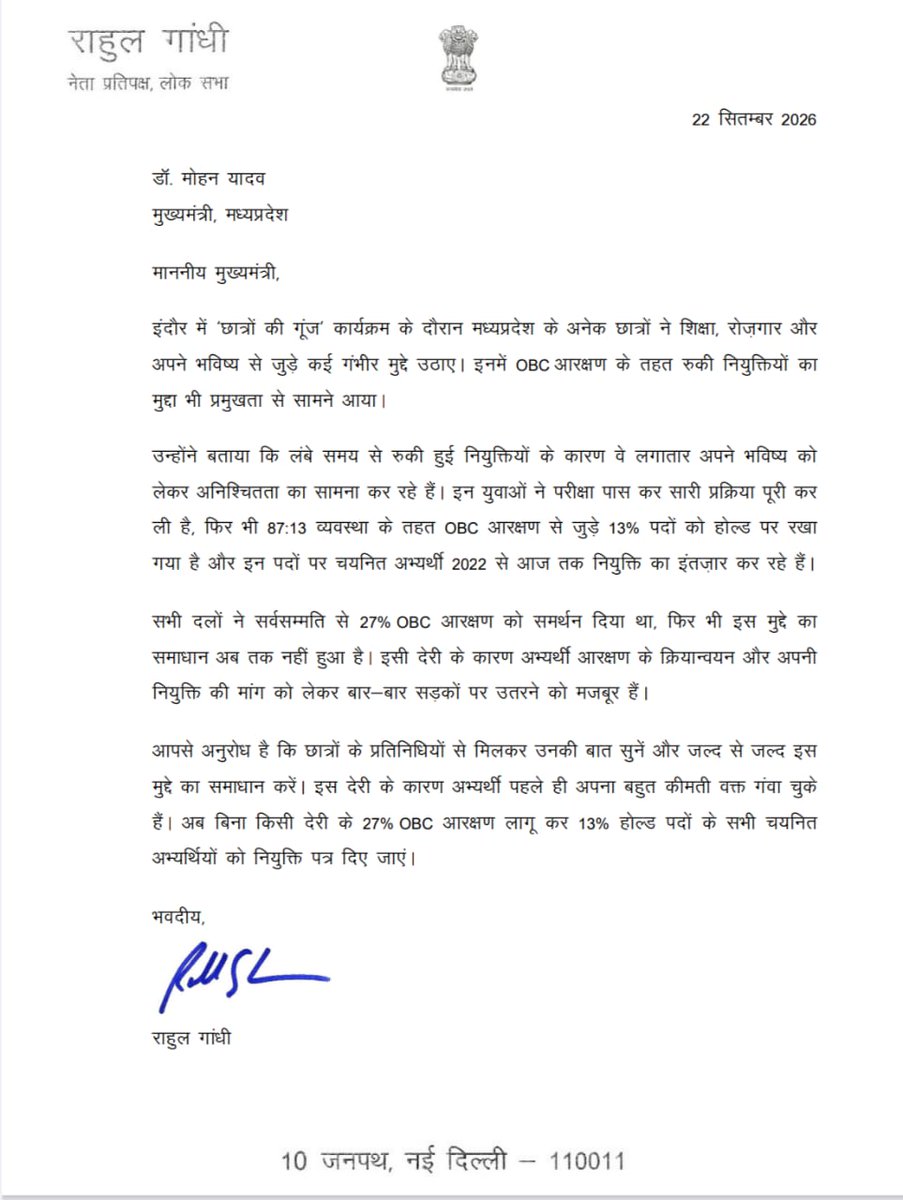 राहुल गांधी
नेता प्रतिपक्ष, लोक सभा
22 सितम्बर 2026
डॉ. मोहन यादव
मुख्यमंत्री, मध्यप्रदेश
माननीय मुख्यमंत्री,
इंदौर में 'छात्रों की गूंज' कार्यक्रम के दौरान मध्यप्रदेश के अनेक छात्रों ने शिक्षा, रोज़गार और
अपने भविष्य से जुड़े कई गंभीर मुद्दे उठाए। इनमें OBC आरक्षण के तहत रुकी नियुक्तियों का
मुद्दा भी प्रमुखता से सामने आया।
उन्होंने बताया कि लंबे समय से रुकी हुई नियुक्तियों के कारण वे लगातार अपने भविष्य को
लेकर अनिश्चितता का सामना कर रहे हैं। इन युवाओं ने परीक्षा पास कर सारी प्रक्रिया पूरी कर
ली है, फिर भी 87:13 व्यवस्था के तहत OBC आरक्षण से जुड़े 13% पदों को होल्ड पर रखा
गया है और इन पदों पर चयनित अभ्यर्थी 2022 से आज तक नियुक्ति का इंतज़ार कर रहे हैं।
सभी दलों ने सर्वसम्मति से 27% OBC आरक्षण को समर्थन दिया था, फिर भी इस मुद्दे का
समाधान अब तक नहीं हुआ है। इसी देरी के कारण अभ्यर्थी आरक्षण के क्रियान्वयन और अपनी
नियुक्ति की मांग को लेकर बार–बार सड़कों पर उतरने को मजबूर हैं।
आपसे अनुरोध है कि छात्रों के प्रतिनिधियों से मिलकर उनकी बात सुनें और जल्द से जल्द इस
मुद्दे का समाधान करें। इस देरी के कारण अभ्यर्थी पहले ही अपना बहुत कीमती वक्त गंवा चुके
हैं। अब बिना किसी देरी के 27% OBC आरक्षण लागू कर 13% होल्ड पदों के सभी चयनित
अभ्यर्थियों को नियुक्ति पत्र दिए जाएं।
भवदीय,
राहुल गांधी
10 जनपथ, नई दिल्ली – 110011